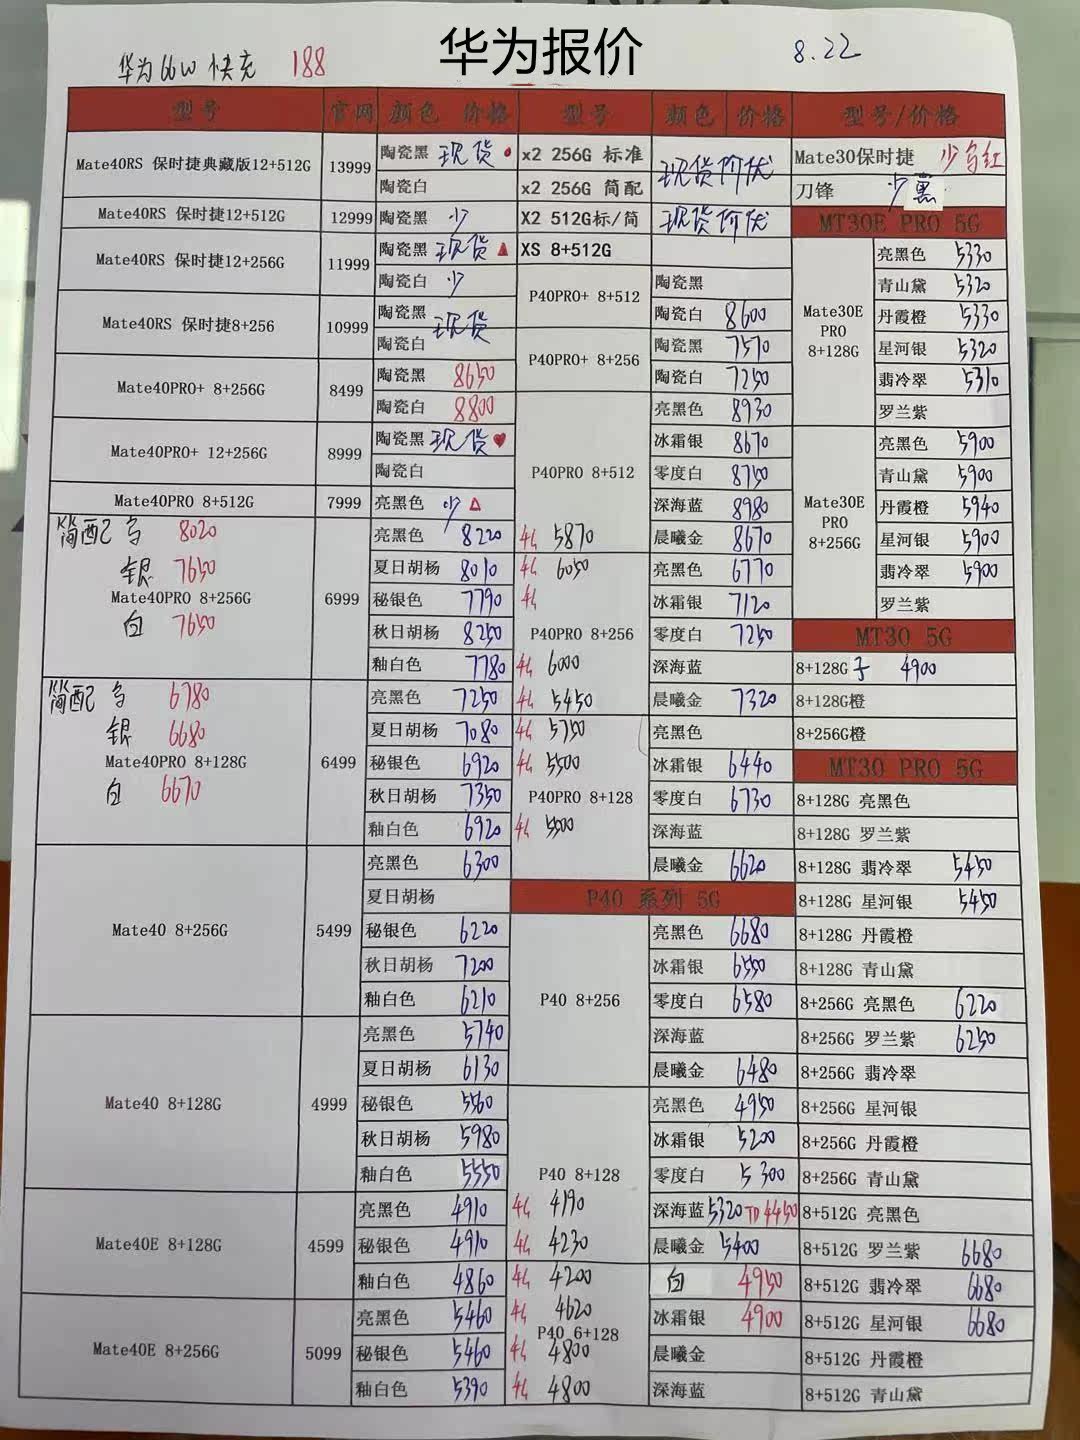 华为报价
华为66W 快充 188 8.22
型号 官网 颜色 价格 型号 颜色 价格 型号/价格
Mate40RS 保时捷典藏版12+512G 13999
陶瓷黑 现货
陶瓷白
Mate40RS 保时捷12+512G 12999
陶瓷黑 少
Mate40RS 保时捷12+256G 11999
陶瓷黑 现货 ▲
陶瓷白 少
Mate40RS 保时捷8+256 10999
陶瓷黑 现货
陶瓷白
Mate40PRO+ 8+256G 8499
陶瓷黑 8650
陶瓷白 8800
Mate40PRO+ 12+256G 8999
陶瓷黑 现货 ♥
陶瓷白
Mate40PRO 8+512G 7999
亮黑色 少 △
简配 8020
银 7650
Mate40PRO 8+256G 6999
白 7650
亮黑色 8220
夏日胡杨 8010
秘银色 7790
秋日胡杨 8250
釉白色 7780
简配 6780
银 6680
Mate40PRO 8+128G 6499
白 6670
亮黑色 7250
夏日胡杨 7080
秘银色 6920
秋日胡杨 7350
釉白色 6920
Mate40 8+256G 5499
亮黑色 6300
夏日胡杨
秘银色 6220
秋日胡杨 7200
釉白色 6210
Mate40 8+128G 4999
亮黑色 5740
夏日胡杨 6130
秘银色 5560
秋日胡杨 5980
釉白色 5550
Mate40E 8+128G 4599
亮黑色 4910
秘银色 4910
釉白色 4860
Mate40E 8+256G 5099
亮黑色 5460
秘银色 5460
釉白色 5390
x2 256G 标准
x2 256G 简配
现货价优
X2 512G标/简 现货价优
XS 8+512G
P40PRO+ 8+512
陶瓷黑
陶瓷白 8600
P40PRO+ 8+256
陶瓷黑 7510
陶瓷白 7250
P40PRO 8+512
亮黑色 8930
冰霜银 8670
零度白 8750
深海蓝 8980
4G 5870
晨曦金 8670
4G 6050
亮黑色 6770
4G
冰霜银 7120
P40PRO 8+256
零度白 7250
4G 6000
深海蓝
4G 5450
晨曦金 7320
4G 5750
亮黑色
4G 5500
冰霜银 6440
P40PRO 8+128
零度白 6730
4G 5500
深海蓝
晨曦金 6620
P40 系列 5G
P40 8+256
亮黑色 6680
冰霜银 6550
零度白 6580
深海蓝
晨曦金 6480
P40 8+128
亮黑色 4950
冰霜银 5200
零度白 5300
4G 4190
深海蓝 5320 TD 4450
4G 4230
晨曦金 5400
4G 4200
白 4950
4G 4620
P40 6+128
冰霜银 4900
4G 4800
晨曦金
4G 4800
深海蓝
Mate30保时捷 少 红
刀锋 少黑
MT30E PRO 5G
Mate30E
PRO
8+128G
亮黑色 5330
青山黛 5320
丹霞橙 5330
星河银 5320
翡冷翠 5310
罗兰紫
Mate30E
PRO
8+256G
亮黑色 5900
青山黛 5900
丹霞橙 5940
星河银 5900
翡冷翠 5900
罗兰紫
MT30 5G
8+128G 4900
8+128G橙
8+256G橙
MT30 PRO 5G
8+128G 亮黑色
8+128G 罗兰紫
8+128G 翡冷翠 5450
8+128G 星河银 5450
8+128G 丹霞橙
8+128G 青山黛
8+256G 亮黑色 6220
8+256G 罗兰紫 6250
8+256G 翡冷翠
8+256G 星河银
8+256G 丹霞橙
8+256G 青山黛
8+512G 亮黑色
8+512G 罗兰紫 6680
8+512G 翡冷翠 6680
8+512G 星河银 6680
8+512G 丹霞橙
8+512G 青山黛